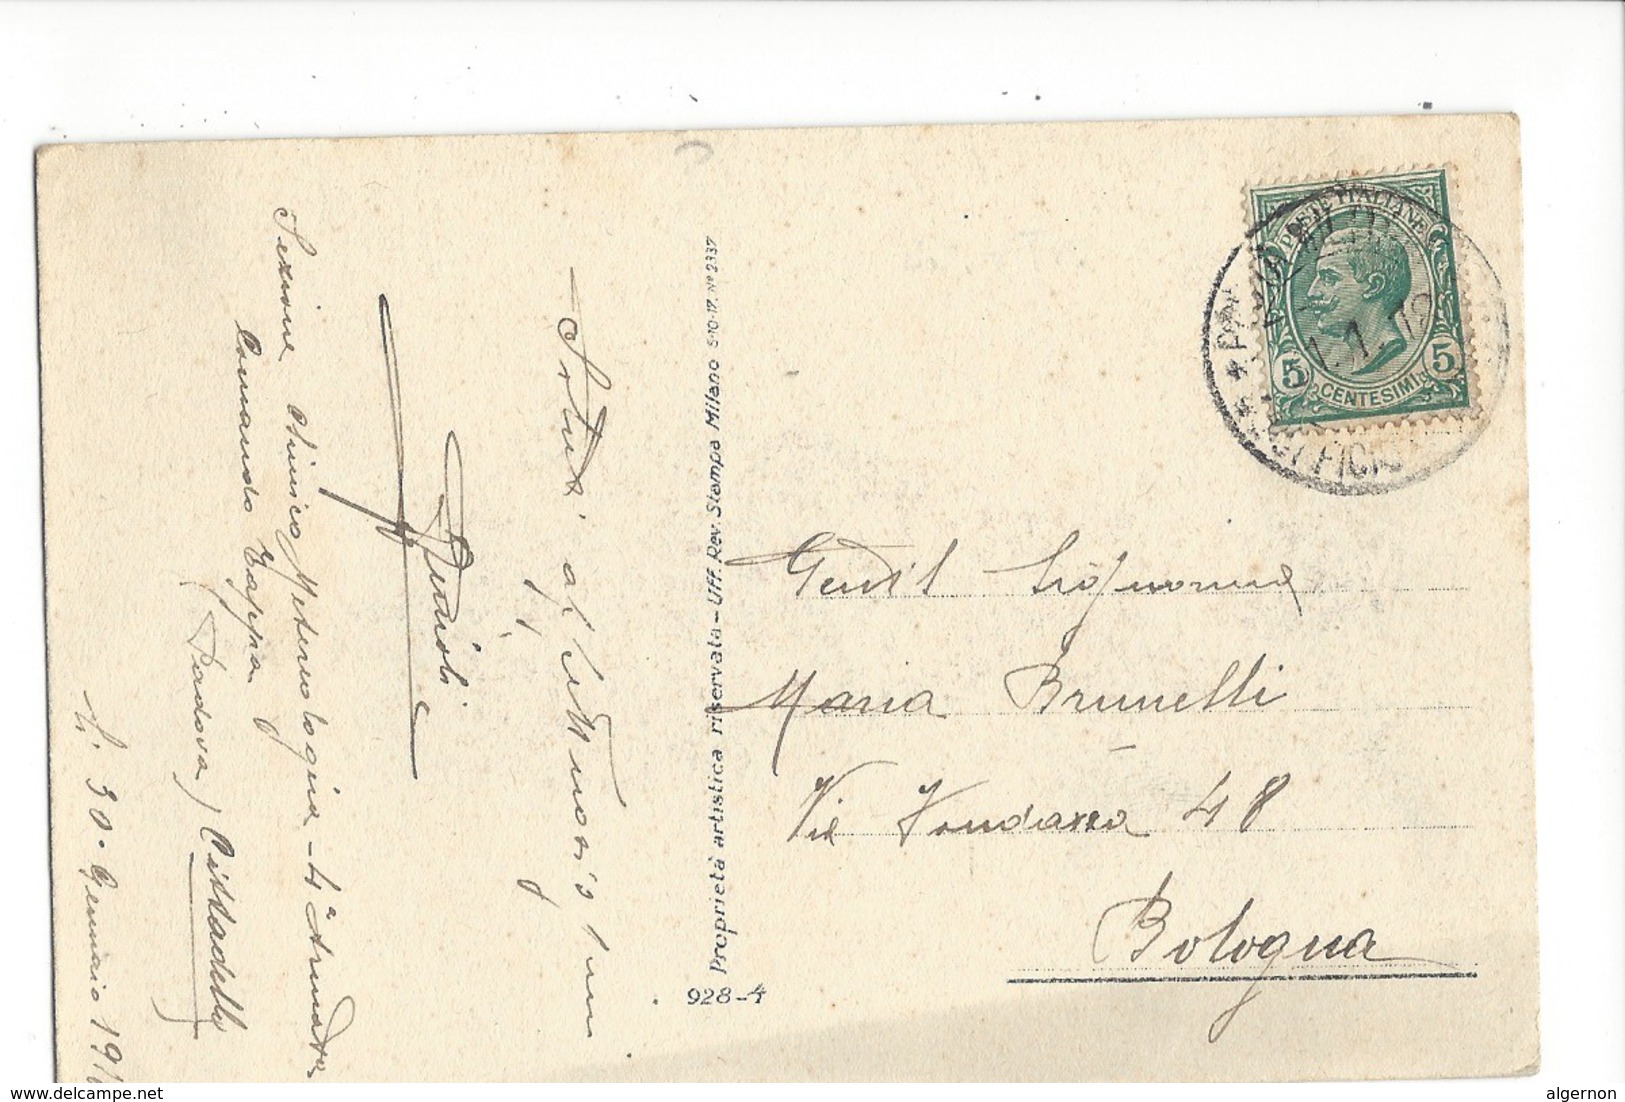 Sezione Chimico Meteorologia - 4ª Armata
Comando Tappa
(Padova) Cittadella
li 30. Gennaio 19
Saluti affettuosissimi
Proprietà artistica riservata - Uff. Rev. Stampa Milano 5-10-17. Nº 2337
928-4
POSTE ITALIANE
5 CENTESIMI 5
UFFICIO
Gentil Signorina
Maria Brunelli
Via Fondazza 48
Bologna
delcampe.net
algernon